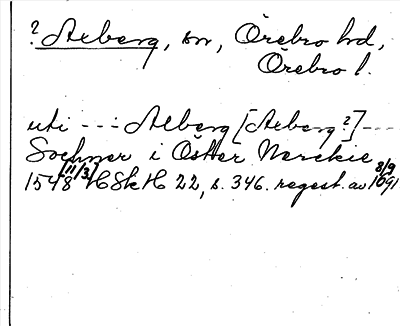 ? Aeberg, sn, Örebro hd,
Örebro l.
uti - - - Alberg [Aeberg?] - - -
Sochner i Öster Nerckie
1548 [11/3] HSkH 22, s. 346. regest. av 8/9 1691